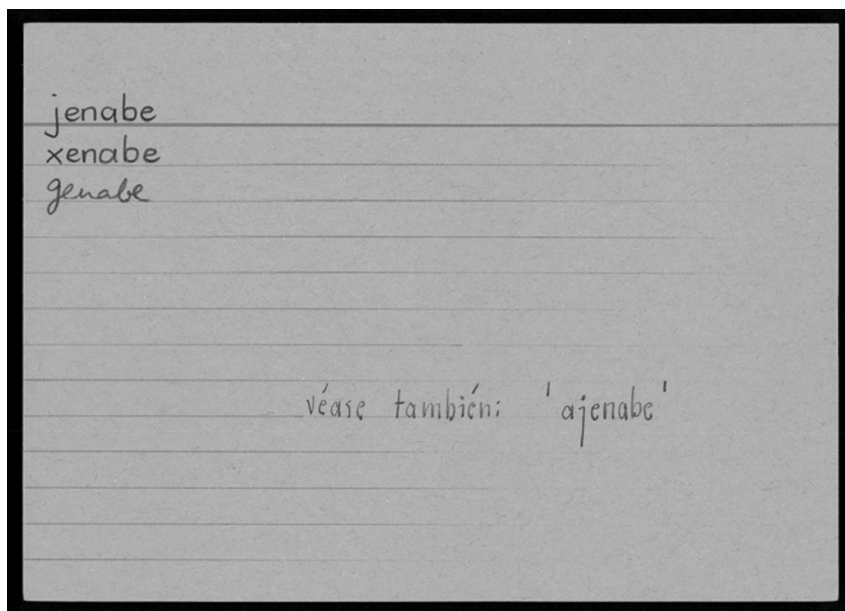 jenabe
xenabe
genabe
véase también: 'ajenabe'